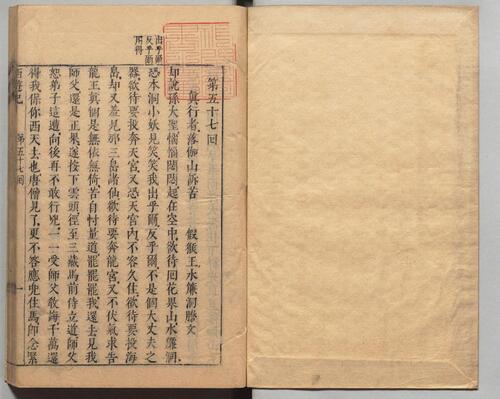 出乎爾
反乎爾
第五十七回
眞行者落伽山訴苦 假猴王水簾洞謄文
却說孫大聖惱惱悶悶起在空中欲待回花果山水簾洞
恐本洞小妖見笑笑我出乎爾反乎爾不是個大丈夫之
器欲待要我奔天宮又恐天宮內不容久住欲待要投海
島却又羞見那三島諸仙欲待要奔龍宮又不伏氣求告
龍王眞個是無依無倚苦自忖量道罷罷罷我還去見我
師父還是正果遂按下雲頭徑至三藏馬前侍立道師父
恕弟子這遭向後再不敢行兇一一受師父教誨千萬還
得我保你西天去也唐僧見了更不答應兜住馬卽念緊
西遊記 第五十七回 一